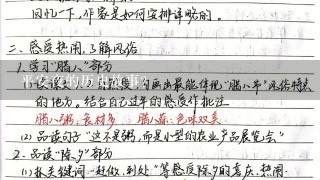 回忆一下,作家是如何安排详略的。
二、感受热闹,了解风俗
1.学习“腊八”部分
画出最能体现“腊八节”风俗特点
的地方。结合自己过年的感受作批注
腊八粥:食材多 腊八蒜:色味双美
(2)品读句子“这不是粥,而是小型的农业产品展览会”
2.品读“除夕”部分
(1)抓关键词“赶做、到处”等感受除夕的喜庆、热闹